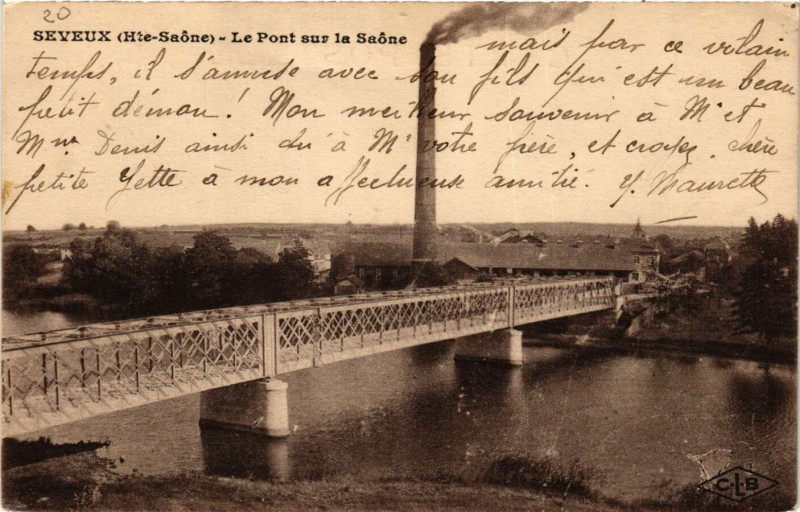 20
SEVEUX (Hte-Saône) - Le Pont sur la Saône
mais par ce vilain
temps, il s'amuse avec son fils qui est un beau
petit démon! Mon meilleur souvenir à Mr et
Mme Denis ainsi qu'à Mr votre père, et croyez chère
petite Yette à mon affectueuse amitié. Y. Maurette
C·L·B